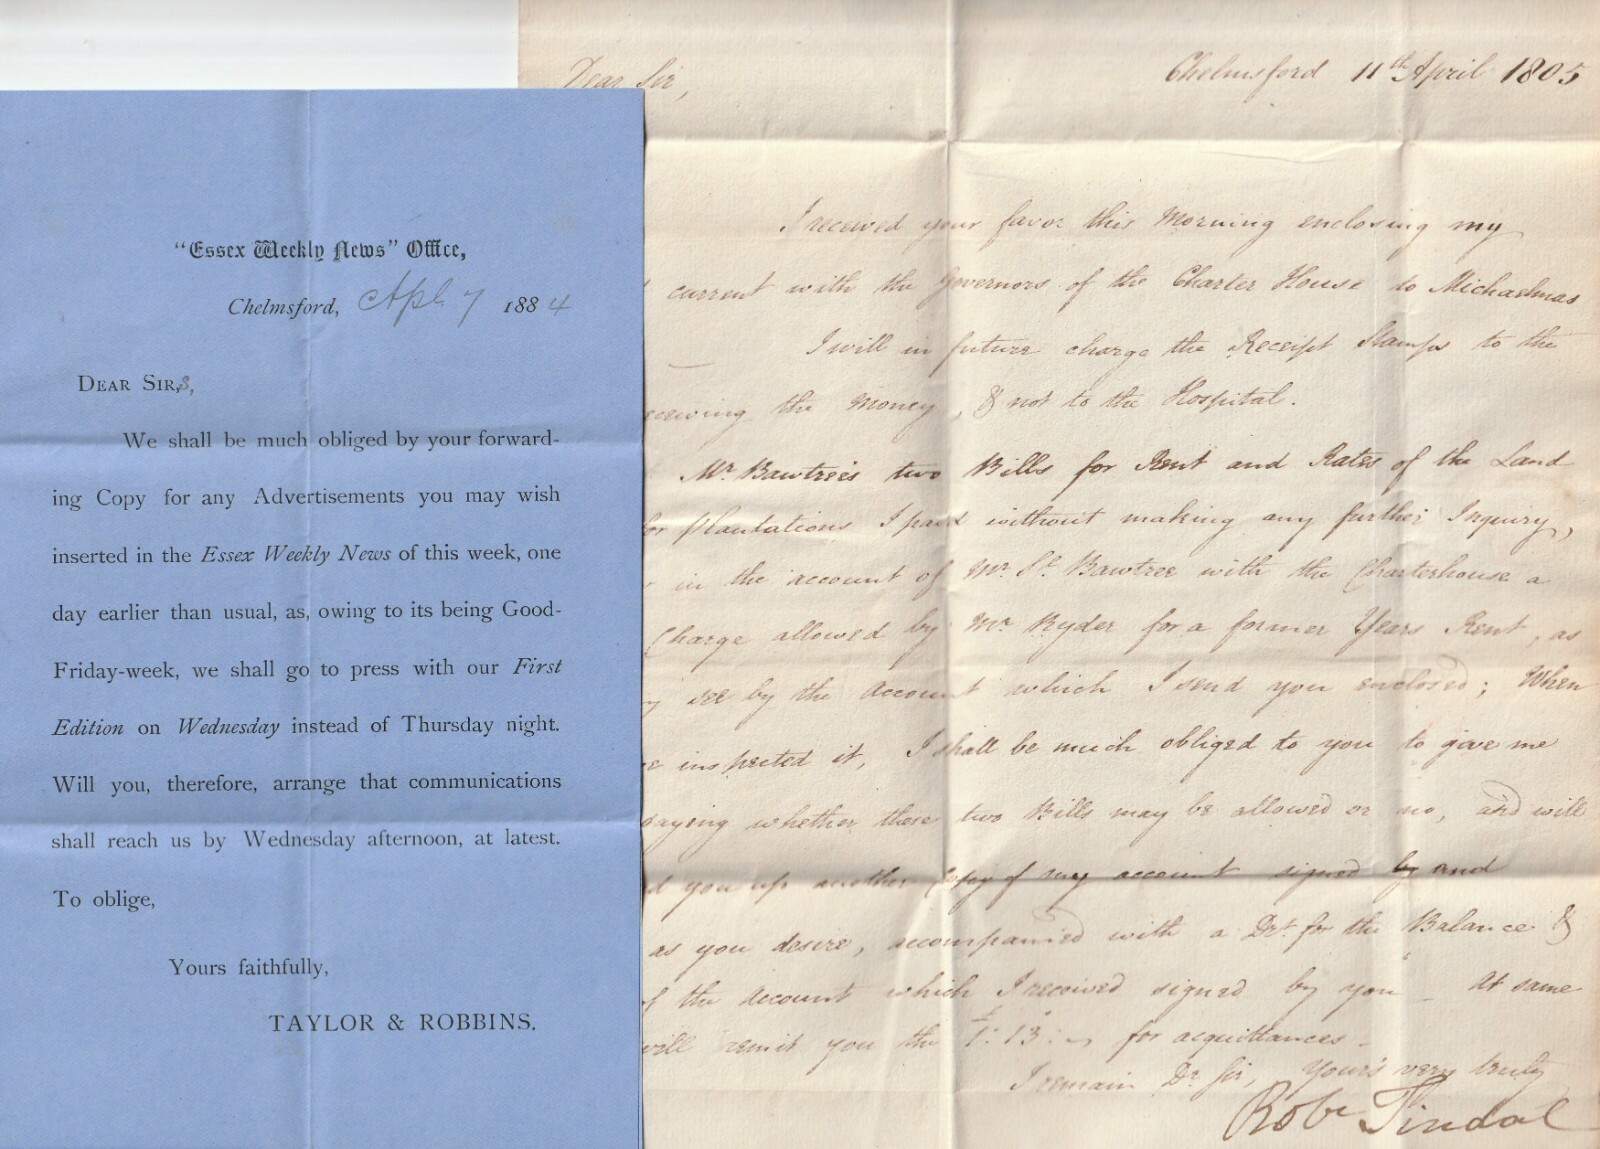 "Essex Weekly News" Office,
Chelmsford, Apl 7 1884
DEAR SIRS,
We shall be much obliged by your forward-
ing Copy for any Advertisements you may wish
inserted in the Essex Weekly News of this week, one
day earlier than usual, as, owing to its being Good-
Friday-week, we shall go to press with our First
Edition on Wednesday instead of Thursday night.
Will you, therefore, arrange that communications
shall reach us by Wednesday afternoon, at latest.
To oblige,
Yours faithfully,
TAYLOR & ROBBINS.
Chelmsford 11th April 1805
Dear Sir,
I received your favor this Morning enclosing my
current with the Governors of the Charter House to Michaelmas
I will in future charge the Receipt Stamps to the
the Money, & not to the Hospital.
Mr. Bawtree's two Bills for Rent and Rates of the Land
for Plantations I paid without making any further Inquiry,
in the account of Mr. St. Bawtree with the Charterhouse a
Charge allowed by Mr Ryder for a former Years Rent, as
see by the Account which I send you enclosed; When
inspected it, I shall be much obliged to you to give me
saying whether these two Bills may be allowed or no, and will
you up another Copy of my account signed by and
as you desire, accompanied with a Dft. for the Balance &
of the Account which I received signed by you - At same
will remit you the £1: 13: - for acquittances -
I remain Dr Sir, Your's very truly
Robt Tindal